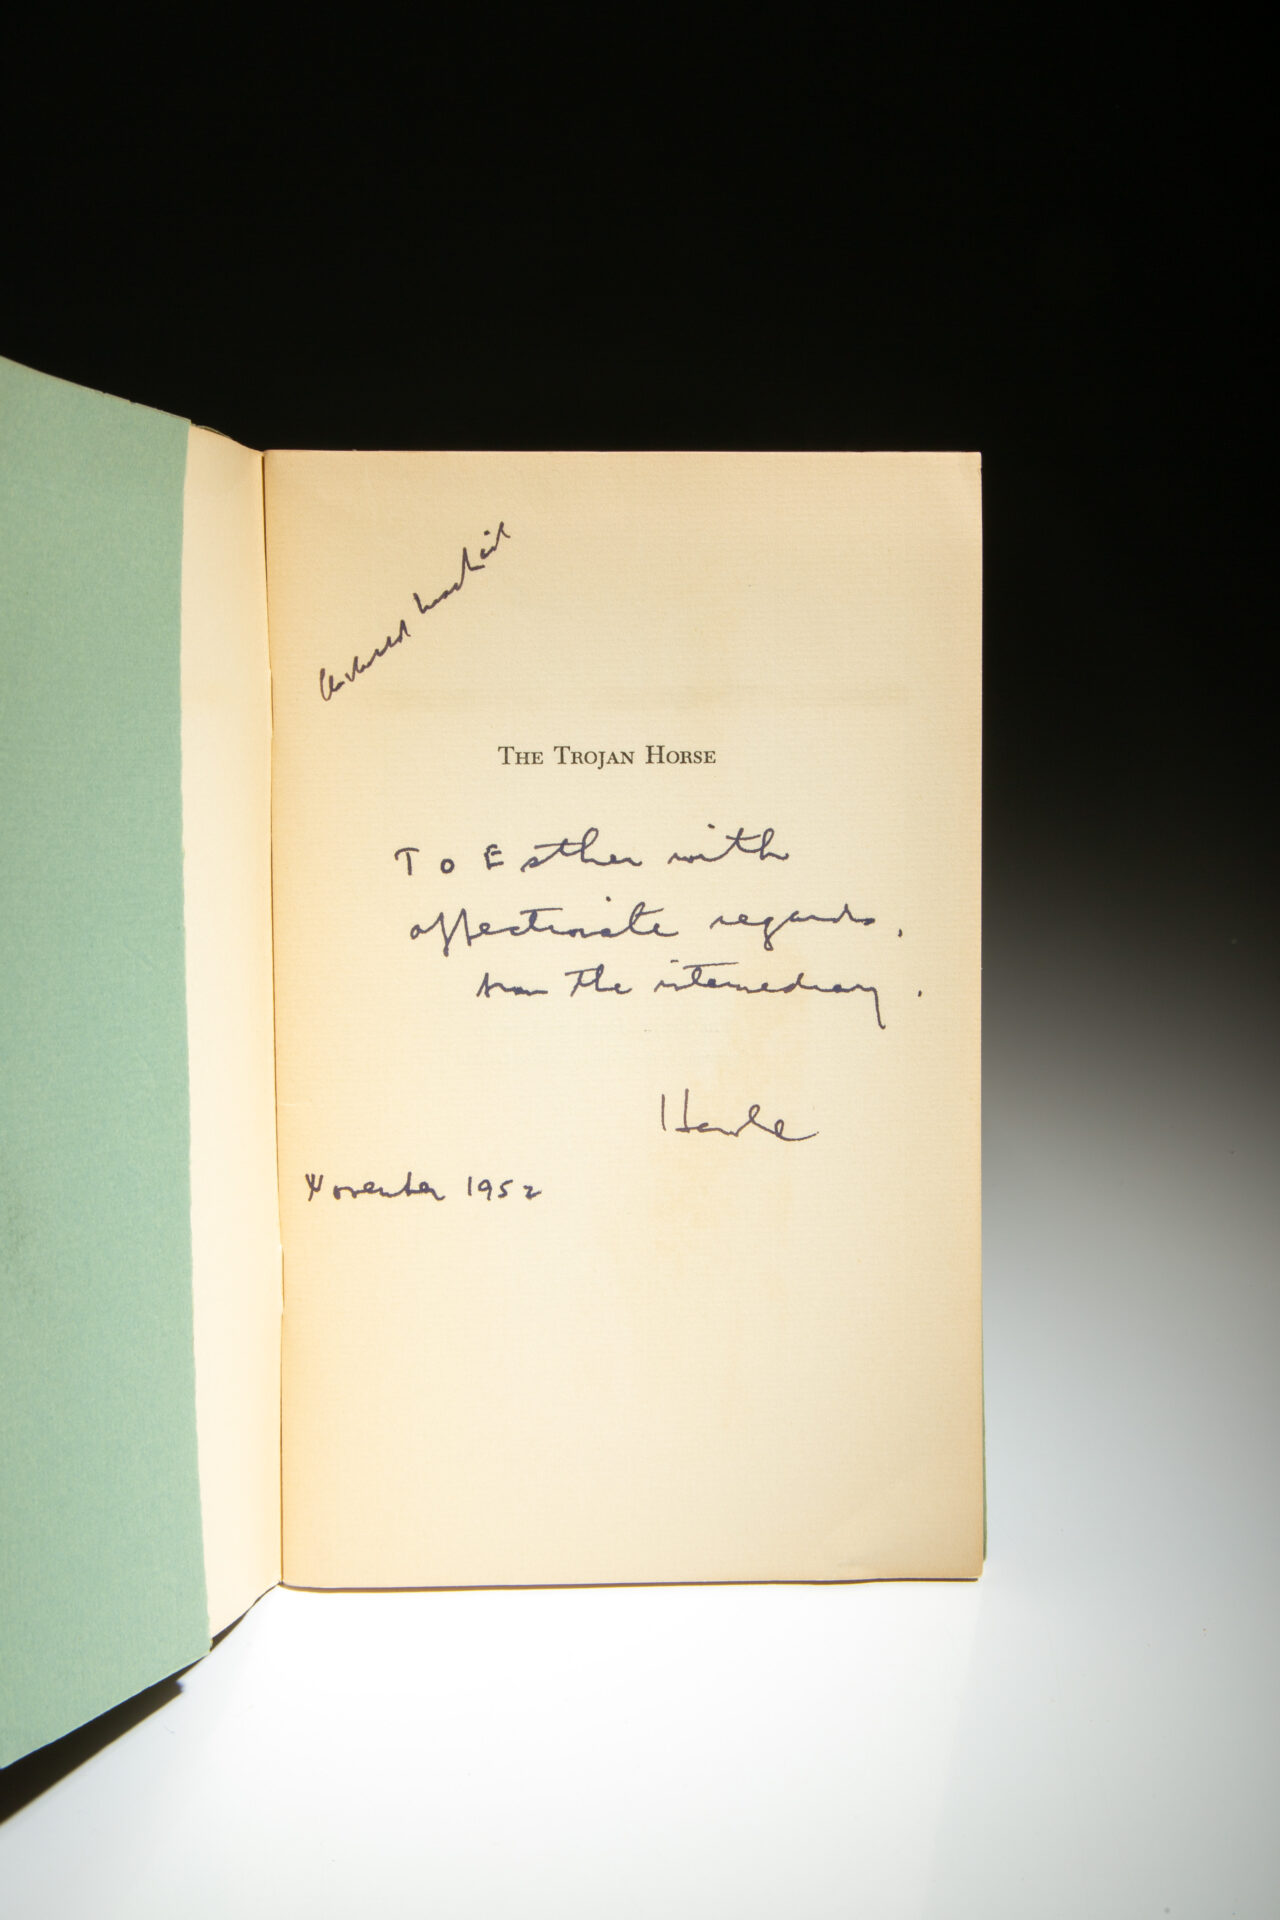 Archibald MacLeish
THE TROJAN HORSE
To Esther with
affectionate regards,
from the intermediary.
November 1952